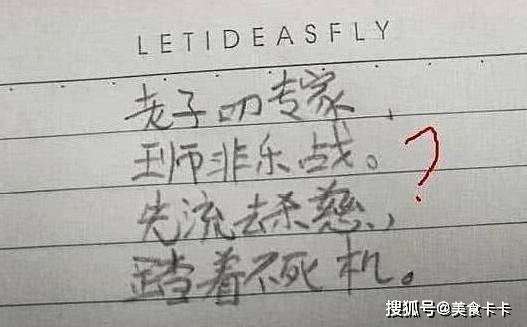 LETIDEASFLY
老子叨专家，
王师非乐战。
先流去杀慈，
着不死机。
?
搜狐号@美食卡卡